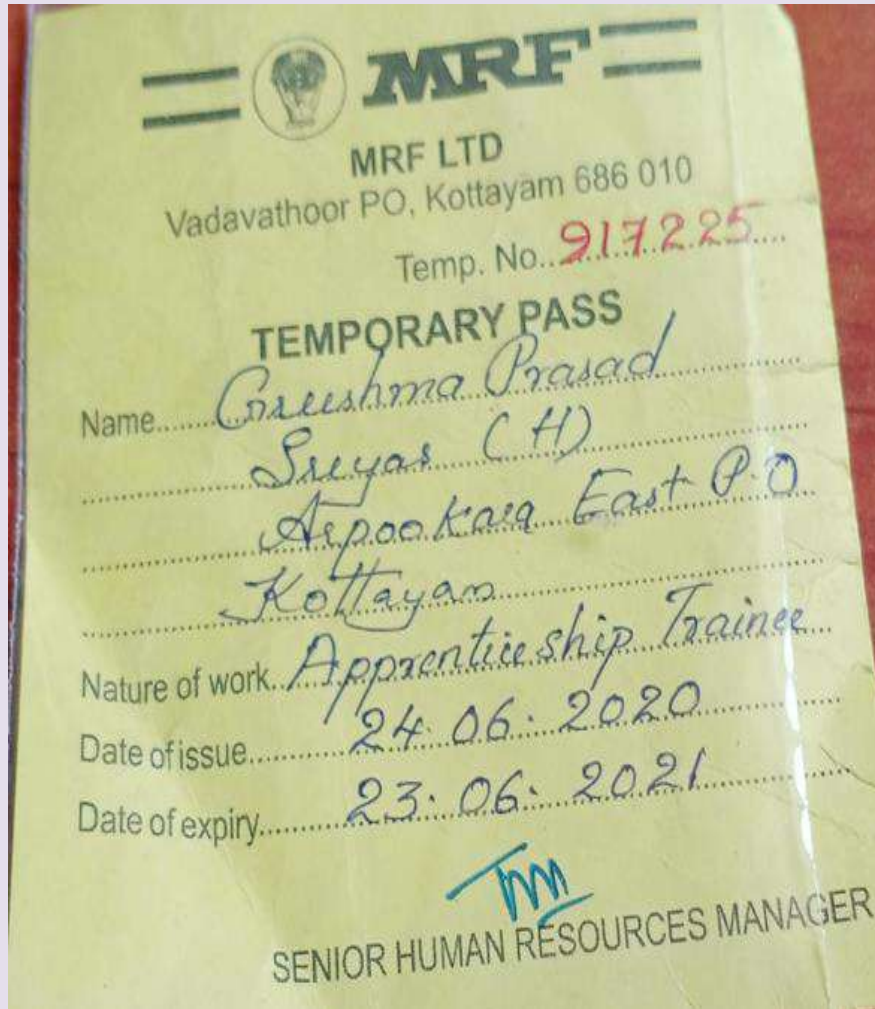 MRF
MRF LTD
Vadavathoor PO, Kottayam 686 010
Temp. No. 917225
TEMPORARY PASS
Name Greeshma Prasad
Sreyas (H)
Arpookara East P.O
Kottayam
Nature of work Apprenticeship Trainee
Date of issue 24.06.2020
Date of expiry 23.06.2021
SENIOR HUMAN RESOURCES MANAGER